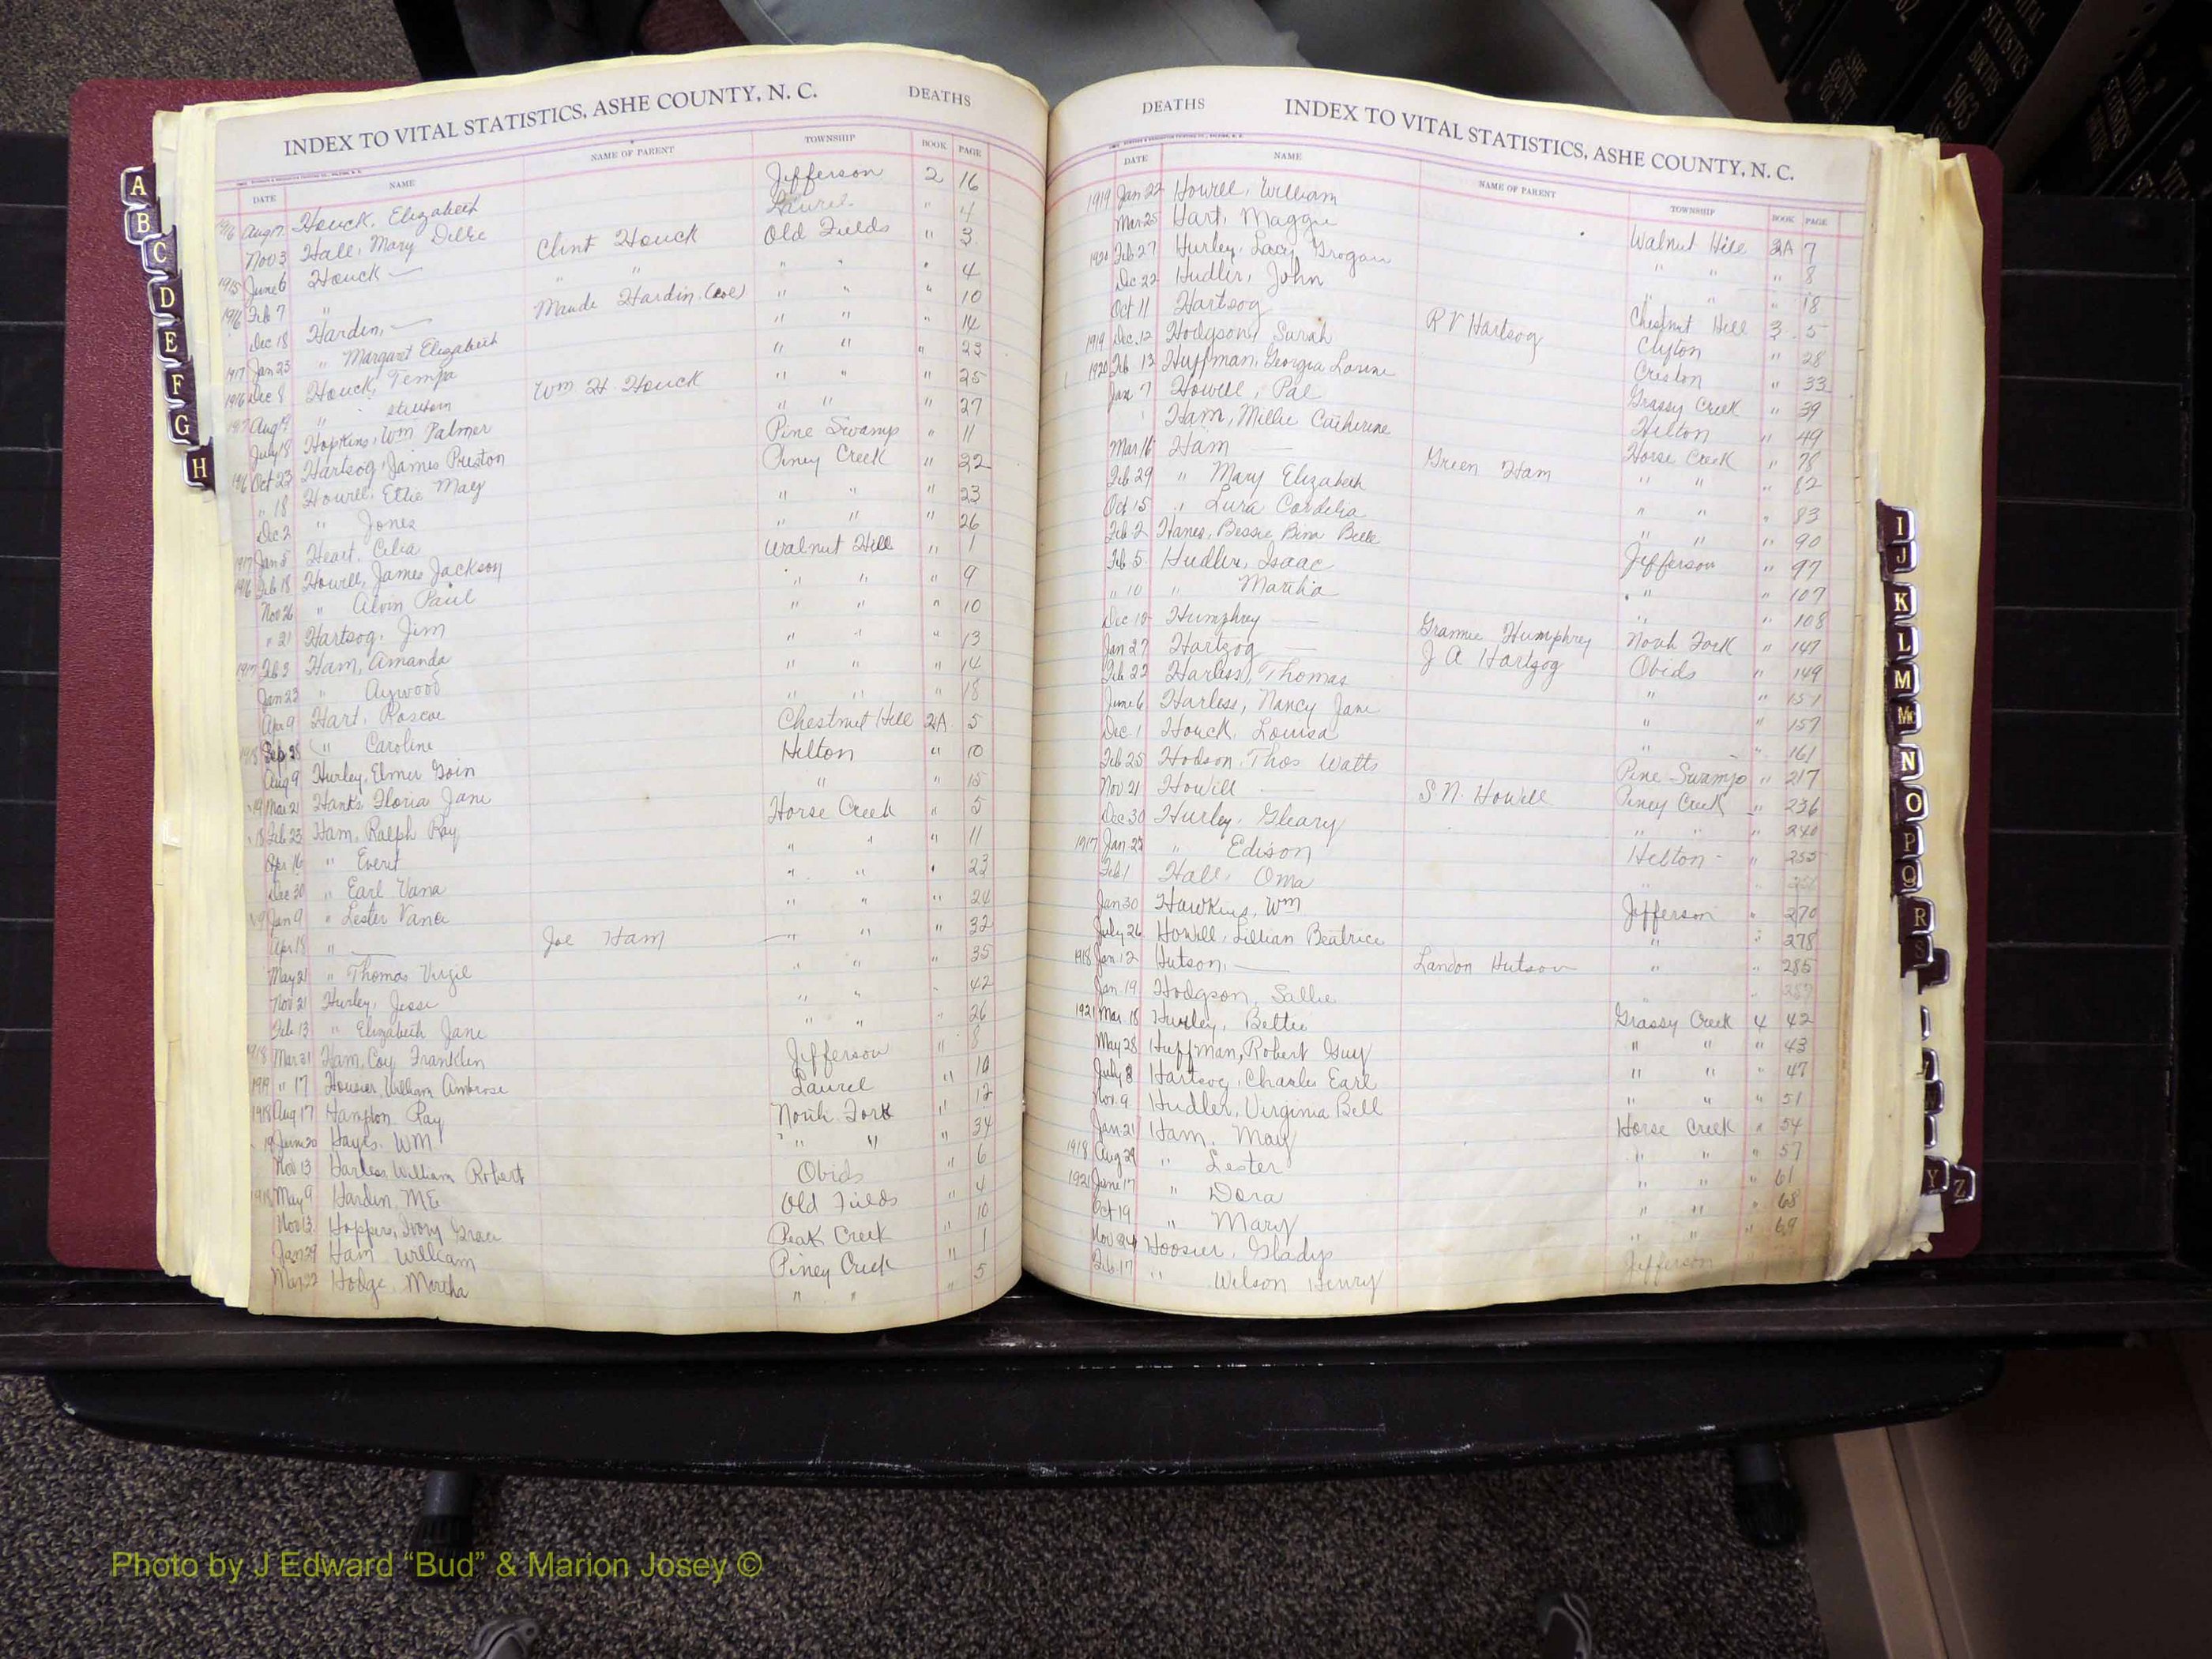 INDEX TO VITAL STATISTICS, ASHE COUNTY, N. C. DEATHS
DATE NAME NAME OF PARENT TOWNSHIP BOOK PAGE
1916 Aug 17 Houck, Elizabeth Jefferson 2 16
Nov 3 Hall, Mary Dellie Laurel " 4
1915 June 6 Houck — Clint Houck Old Fields " 3
1916 Feb 7 " " " " " " 4
Dec 18 Hardin, — Maude Hardin (col) " " " 10
1917 Jan 23 " Margaret Elizabeth " " " 14
1916 Dec 8 Houck, Tempa " " " 23
1917 Aug 9 " Wm H Houck " " " 25
July 18 Hopkins, Wm Palmer " " " 27
1916 Oct 23 Hartsog, James Preston Pine Swamp " 11
" 18 Howell, Ettie May Piney Creek " 22
Dec 2 " Jones " " " 23
1917 Jan 5 Heart, Celia " " " 26
1916 Feb 18 Howell, James Jackson Walnut Hill " 1
Nov 26 " Alvin Paul " " " 9
" 21 Hartsog, Jim " " " 10
1917 Feb 3 Ham, Amanda " " " 13
Jan 23 " Aywood " " " 14
Apr 9 Hart, Roscoe " " " 18
1918 Sep 28 " Caroline Chestnut Hill 2A 5
Aug 9 Hurley, Elmer Goin Helton " 10
19 Mar 21 Hanks, Floria Jane " " 15
18 Feb 23 Ham, Ralph Ray Horse Creek " 5
Apr 16 " Everet " " " 11
Dec 30 " Earl Vana " " " 23
19 Jan 9 " Lester Vance " " " 24
Apr 18 " — Joe Ham " " " 32
May 21 " Thomas Virgil " " " 35
Nov 21 Hurley, Jesse " " " 42
Feb 13 " Elizabeth Jane " " " 26
1918 Mar 31 Ham, Coy Franklin Jefferson " 8
1919 " 17 Housier, William Ambrose Laurel " 10
1918 Aug 17 Hampton Ray North Fork " 12
19 June 20 Hayes, WM " " " 34
Nov 13 Harless, William Robert Obids " 6
1918 May 9 Hardin, ME Old Fields " 4
Nov 13 Hopper, Ivory Grace Peak Creek " 10
Jan 29 Ham William Piney Creek " 1
Mar 22 Hodge, Martha " " " 5
DEATHS INDEX TO VITAL STATISTICS, ASHE COUNTY, N. C.
DATE NAME NAME OF PARENT TOWNSHIP BOOK PAGE
1919 Jan 22 Howell, William Walnut Hill 2A 7
Mar 25 Hart, Maggie " " " 8
1920 Feb 27 Hurley, Lacy Grogan " " " 18
Dec 22 Hudler, John Chestnut Hill 3 5
Oct 11 Hartsog R V Hartsog Clifton " 28
1919 Dec 12 Hodgson, Sarah Creston " 33
1920 Feb 13 Huffman, Georgia Grassy Creek " 39
Jan 7 Howell, Pal Helton " 49
Ham, Millie Catherine Horse Creek " 78
Mar 16 Ham — Green Ham " " " 82
Feb 29 " Mary Elizabeth " " " 83
Oct 15 " Lura Cordelia " " " 90
Feb 2 Hanes, Bessie, Bina Belle Jefferson " 97
Feb 5 Hudler, Isaac " " 107
" 10 " Martha " " 108
Dec 10 Humphrey — Grannie Humphrey North Fork " 147
Jan 27 Hartzog — J A Hartzog Obids " 149
Feb 22 Harless, Thomas " " 151
June 6 Harless, Nancy Jane " " 157
Dec 1 Houck, Louisa " " 161
Feb 25 Hodson, Thos Watts Pine Swamp " 217
Nov 21 Howell — S N. Howell Piney Creek " 236
Dec 30 Hurley, Gleary " " " 240
1917 Jan 23 " Edison Helton " 255
Feb 1 Hall, Oma
Jan 30 Hawkins, Wm Jefferson " 270
July 26 Howell, Lillian Beatrice " " 278
1918 Jan 12 Hutson, — Landon Hutson " " 285
Jan 19 Hodgson, Sallie " 287
1921 Mar 18 Hurley, Bettie Grassy Creek 4 42
May 28 Huffman, Robert Guy " " " 43
July 8 Hartsog, Charles Earl " " " 47
Nov. 9 Hudler, Virginia Bell " " " 51
Jan 21 Ham, May Horse Creek " 54
1918 Aug 29 " Lester " " " 57
1921 June 17 " Dora " " " 61
Oct 19 " Mary " " " 68
Nov 24 Hoosier, Gladys " " " 69
Feb 17 " Wilson Henry Jefferson
A
B
C
D
E
F
G
H
I
J
K
L
M
Mc
N
O
P
Q
R
S
W
Y Z
VITAL STATISTICS BIRTHS 1963
Photo by J Edward “Bud” & Marion Josey ©